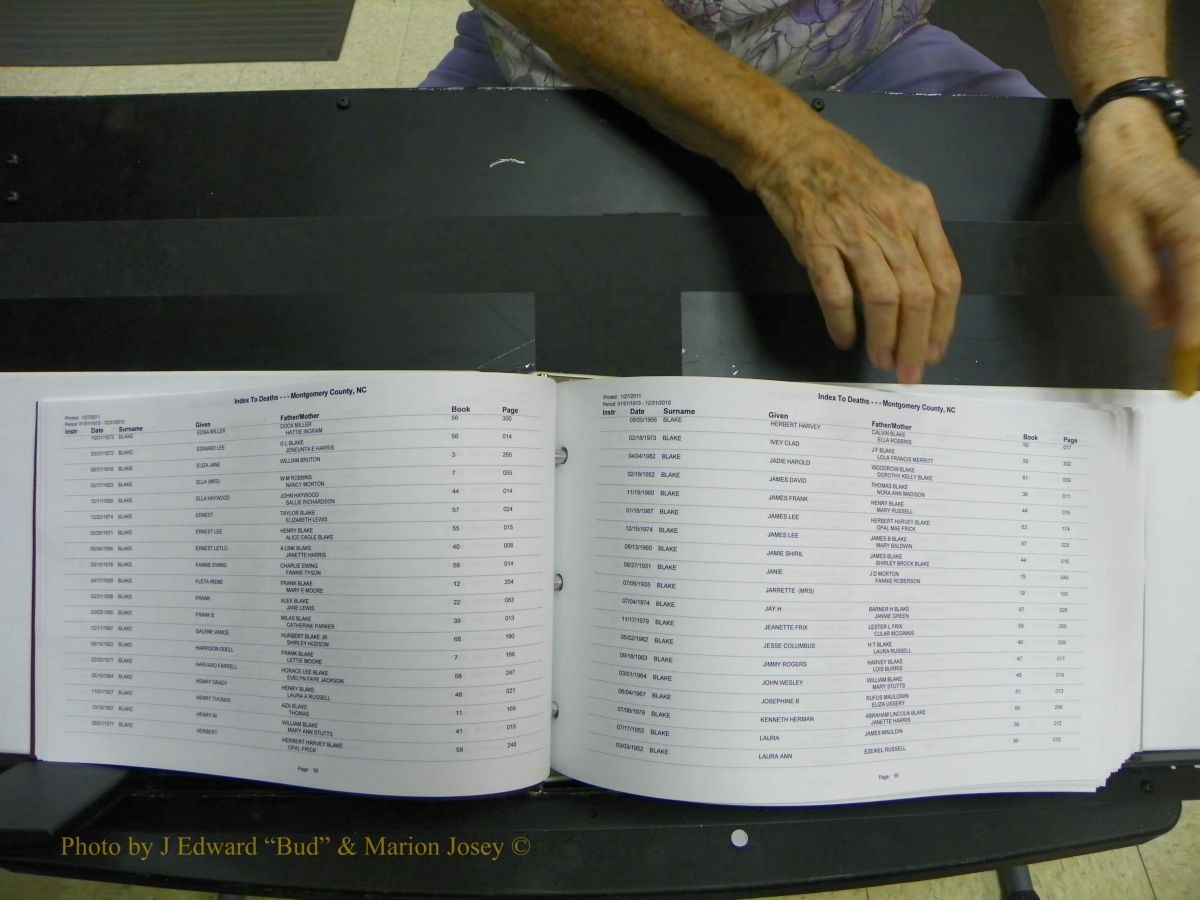 Index To Deaths - - - Montgomery County, NC
Printed: 1/27/2011
Period: 01/01/1913 - 12/31/2010
Instr Date Surname Given Father/Mother Book Page
10/21/1973 BLAKE EDNA MILLER DOCK MILLER 56 300
HATTIE INGRAM
BLAKE EDWARD LEE G L BLAKE 56 014
JENEUNTA E HARRIS
BLAKE ELIZA JANE WILLIAM BRUTON 3 265
BLAKE ELLA (MRS) W M ROBBINS 7 055
NANCY MORTON
BLAKE ELLA HAYWOOD JOHN HAYWOOD 44 014
SALLIE RICHARDSON
12/22/1974 BLAKE ERNEST TAYLOR BLAKE 57 024
ELIZABETH LEWIS
BLAKE ERNEST LEE HENRY BLAKE 55 015
ALICE CAGLE BLAKE
BLAKE ERNEST LETLO A LINK BLAKE 40 008
JANETTE HARRIS
BLAKE FANNIE EWING CHARLIE EWING 58 014
FANNIE TYSON
BLAKE FLETA IRENE FRANK BLAKE 12 204
MARY E MOORE
BLAKE FRANK ALEX BLAKE 22 063
JANE LEWIS
BLAKE FRANK B MILAS BLAKE 39 013
CATHERINE PARKER
BLAKE GALENE VANCE HURBERT BLAKE JR 68 190
SHIRLEY HUDSON
BLAKE HARRISON ODELL FRANK BLAKE 7 166
LETTIE MOORE
BLAKE HARVARD FARRELL HORACE LEE BLAKE 58 247
EVELYN FAYE JACKSON
BLAKE HENRY GRADY HENRY BLAKE 48 021
LAURA A RUSSELL
BLAKE HENRY THOMAS AZA BLAKE 11 169
THOMAS
BLAKE HENRY W WILLIAM BLAKE 41 015
MARY ANN STUTTS
BLAKE HERBERT HERBERT HARVEY BLAKE 58 248
OPAL FRICK
Page 58
Index To Deaths - - - Montgomery County, NC
Printed: 1/27/2011
Period: 01/01/1913 - 12/31/2010
Instr Date Surname Given Father/Mother Book Page
08/05/1966 BLAKE HERBERT HARVEY CALVIN BLAKE 50 017
ELLA ROBBINS
02/18/1973 BLAKE IVEY CLAD J F BLAKE 56 302
LOLA FRANCIS MERRITT
04/04/1982 BLAKE JADIE HAROLD WOODROW BLAKE 61 009
DOROTHY KELLY BLAKE
02/18/1952 BLAKE JAMES DAVID THOMAS BLAKE 36 011
NORA ANN MADISON
11/19/1960 BLAKE JAMES FRANK HENRY BLAKE 44 015
MARY RUSSELL
01/18/1987 BLAKE JAMES LEE HERBERT HARVEY BLAKE 63 174
OPAL MAE FRICK
12/15/1974 BLAKE JAMES LEE JAMES B BLAKE 57 025
MARY BALDWIN
08/13/1960 BLAKE JAMIE SHIRIL JAMES BLAKE 44 016
SHIRLEY BROCK BLAKE
08/27/1931 BLAKE JANIE J D MORTON 15 040
FANNIE ROBERSON
07/06/1935 BLAKE JARRETTE (MRS) 19 155
07/04/1974 BLAKE JAY H BARNER H BLAKE 57 026
JANNIE GREEN
11/17/1979 BLAKE JEANETTE FRIX LESTER L FRIX 59 265
CULAR MCGINNIS
05/02/1962 BLAKE JESSE COLUMBUS H T BLAKE 46 009
LAURA RUSSELL
09/18/1963 BLAKE JIMMY ROGERS HARVEY BLAKE 47 017
LOIS BURRIS
03/01/1964 BLAKE JOHN WESLEY WILLIAM BLAKE 48 019
MARY STUTTS
06/04/1967 BLAKE JOSEPHINE B RUFUS MAULDWIN 51 013
ELIZA USSERY
07/06/1979 BLAKE KENNETH HERMAN ABRAHAM LINCOLN BLAKE 59 266
JANETTE HARRIS
07/17/1952 BLAKE LAURA JAMES MAULDIN 36 012
03/03/1952 BLAKE LAURA ANN EZEIKEL RUSSELL 36 010
Page 59
Photo by J Edward “Bud” & Marion Josey ©